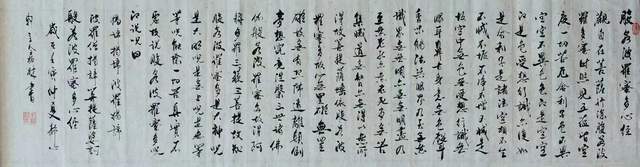 般若波羅蜜多心经
觀自在菩薩行深般若波
羅蜜多時照見五蘊皆空
度一切苦厄舍利子色不異
空空不異色色即是空空
即是色受想行識亦復如
是舍利子是諸法空相不生
不滅不垢不淨不增不減是
故空中無色無受想行識無
眼耳鼻舌身意無色聲
香味觸法無眼界乃至無意
識界無無明亦無無明盡乃
至無老死亦無老死盡無苦
集滅道無智亦無得以無所
得故菩提薩埵依般若波
羅蜜多故心無罣礙無罣
礙故無有恐怖遠離顛倒
夢想究竟涅槃三世諸佛
依般若波羅蜜多故得阿
耨多羅三藐三菩提故知
般若波羅蜜多是大神咒
是大明咒是無上咒是無等
等咒能除一切苦真實不
虛故說般若波羅蜜多咒
即說咒曰
揭諦揭諦波羅揭諦
波羅僧揭諦菩提薩婆訶
般若波羅蜜多心经